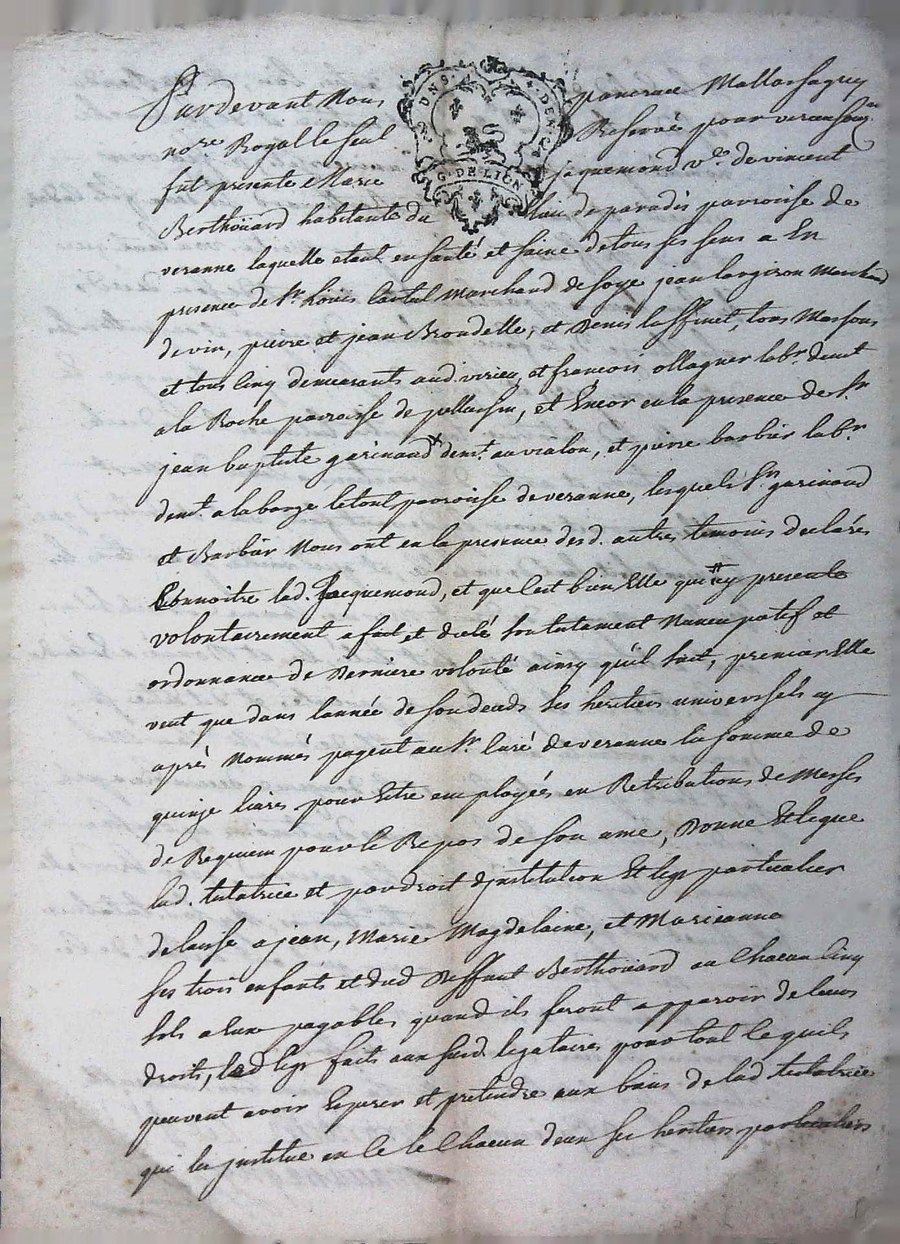 Pardevant Nous pancrace Mallassagny
nore. Royal le seul Reservé pour virieu soug.
fut presente Marie jaquemond ve. de vincent
Berthöuard habitante du lieu de paradis parroisse de
veranne laquelle etant en santé et saine de tous ses sens a En
presence de Sr. Louis Marchand de soye jean Marchand
de vin, pierre et jean Brondelle, et Denis laffinet, tous Massons
et tous cinq demeurants aud. virieu, et francois ollagner labr. demt.
a la Roche parroisse de pellussin, et Encor en la presence de Sr.
jean baptiste garinaud demt. au vialon, et pierre barbier labr.
demt. a la barge le tout parroisse de veranne, lesquels Srs. garinaud
et Barbier Nous ont en la presence desd. autres temoins declarés
Connoitre lad. Jacquemond, et que c'est bien Elle qui cy presente
volontairement a fait et dicté son testament Nuncupatif et
ordonnance de Derniere volonté ainsy qu'il suit, premier Elle
veut que dans lannée de son deceds ses heritiers universsels cy
aprés Nommés payent au Sr. Curé de veranne la somme de
quinze livres pour Etre employés en Retributions de Messes
de Requiem pour le Repos de son ame, Donne Et legue
lad. testatrice et par droit d'institution Et legs particulier
delaisse a jean, Marie Magdelaine, et Marieanne
ses trois enfants et dud. Deffunt Berthöuard au Chacun Cinq
sols a Eux payables quand ils feront apparoir de leurs
droits, led. legs faits aux susd. legataires pour tout ce quils
peuvent avoir Esperer et pretendre aux biens de lad. testatrice
qui les institue en Ce le Chacun deux ses heritiers particuliers
G. DE LION